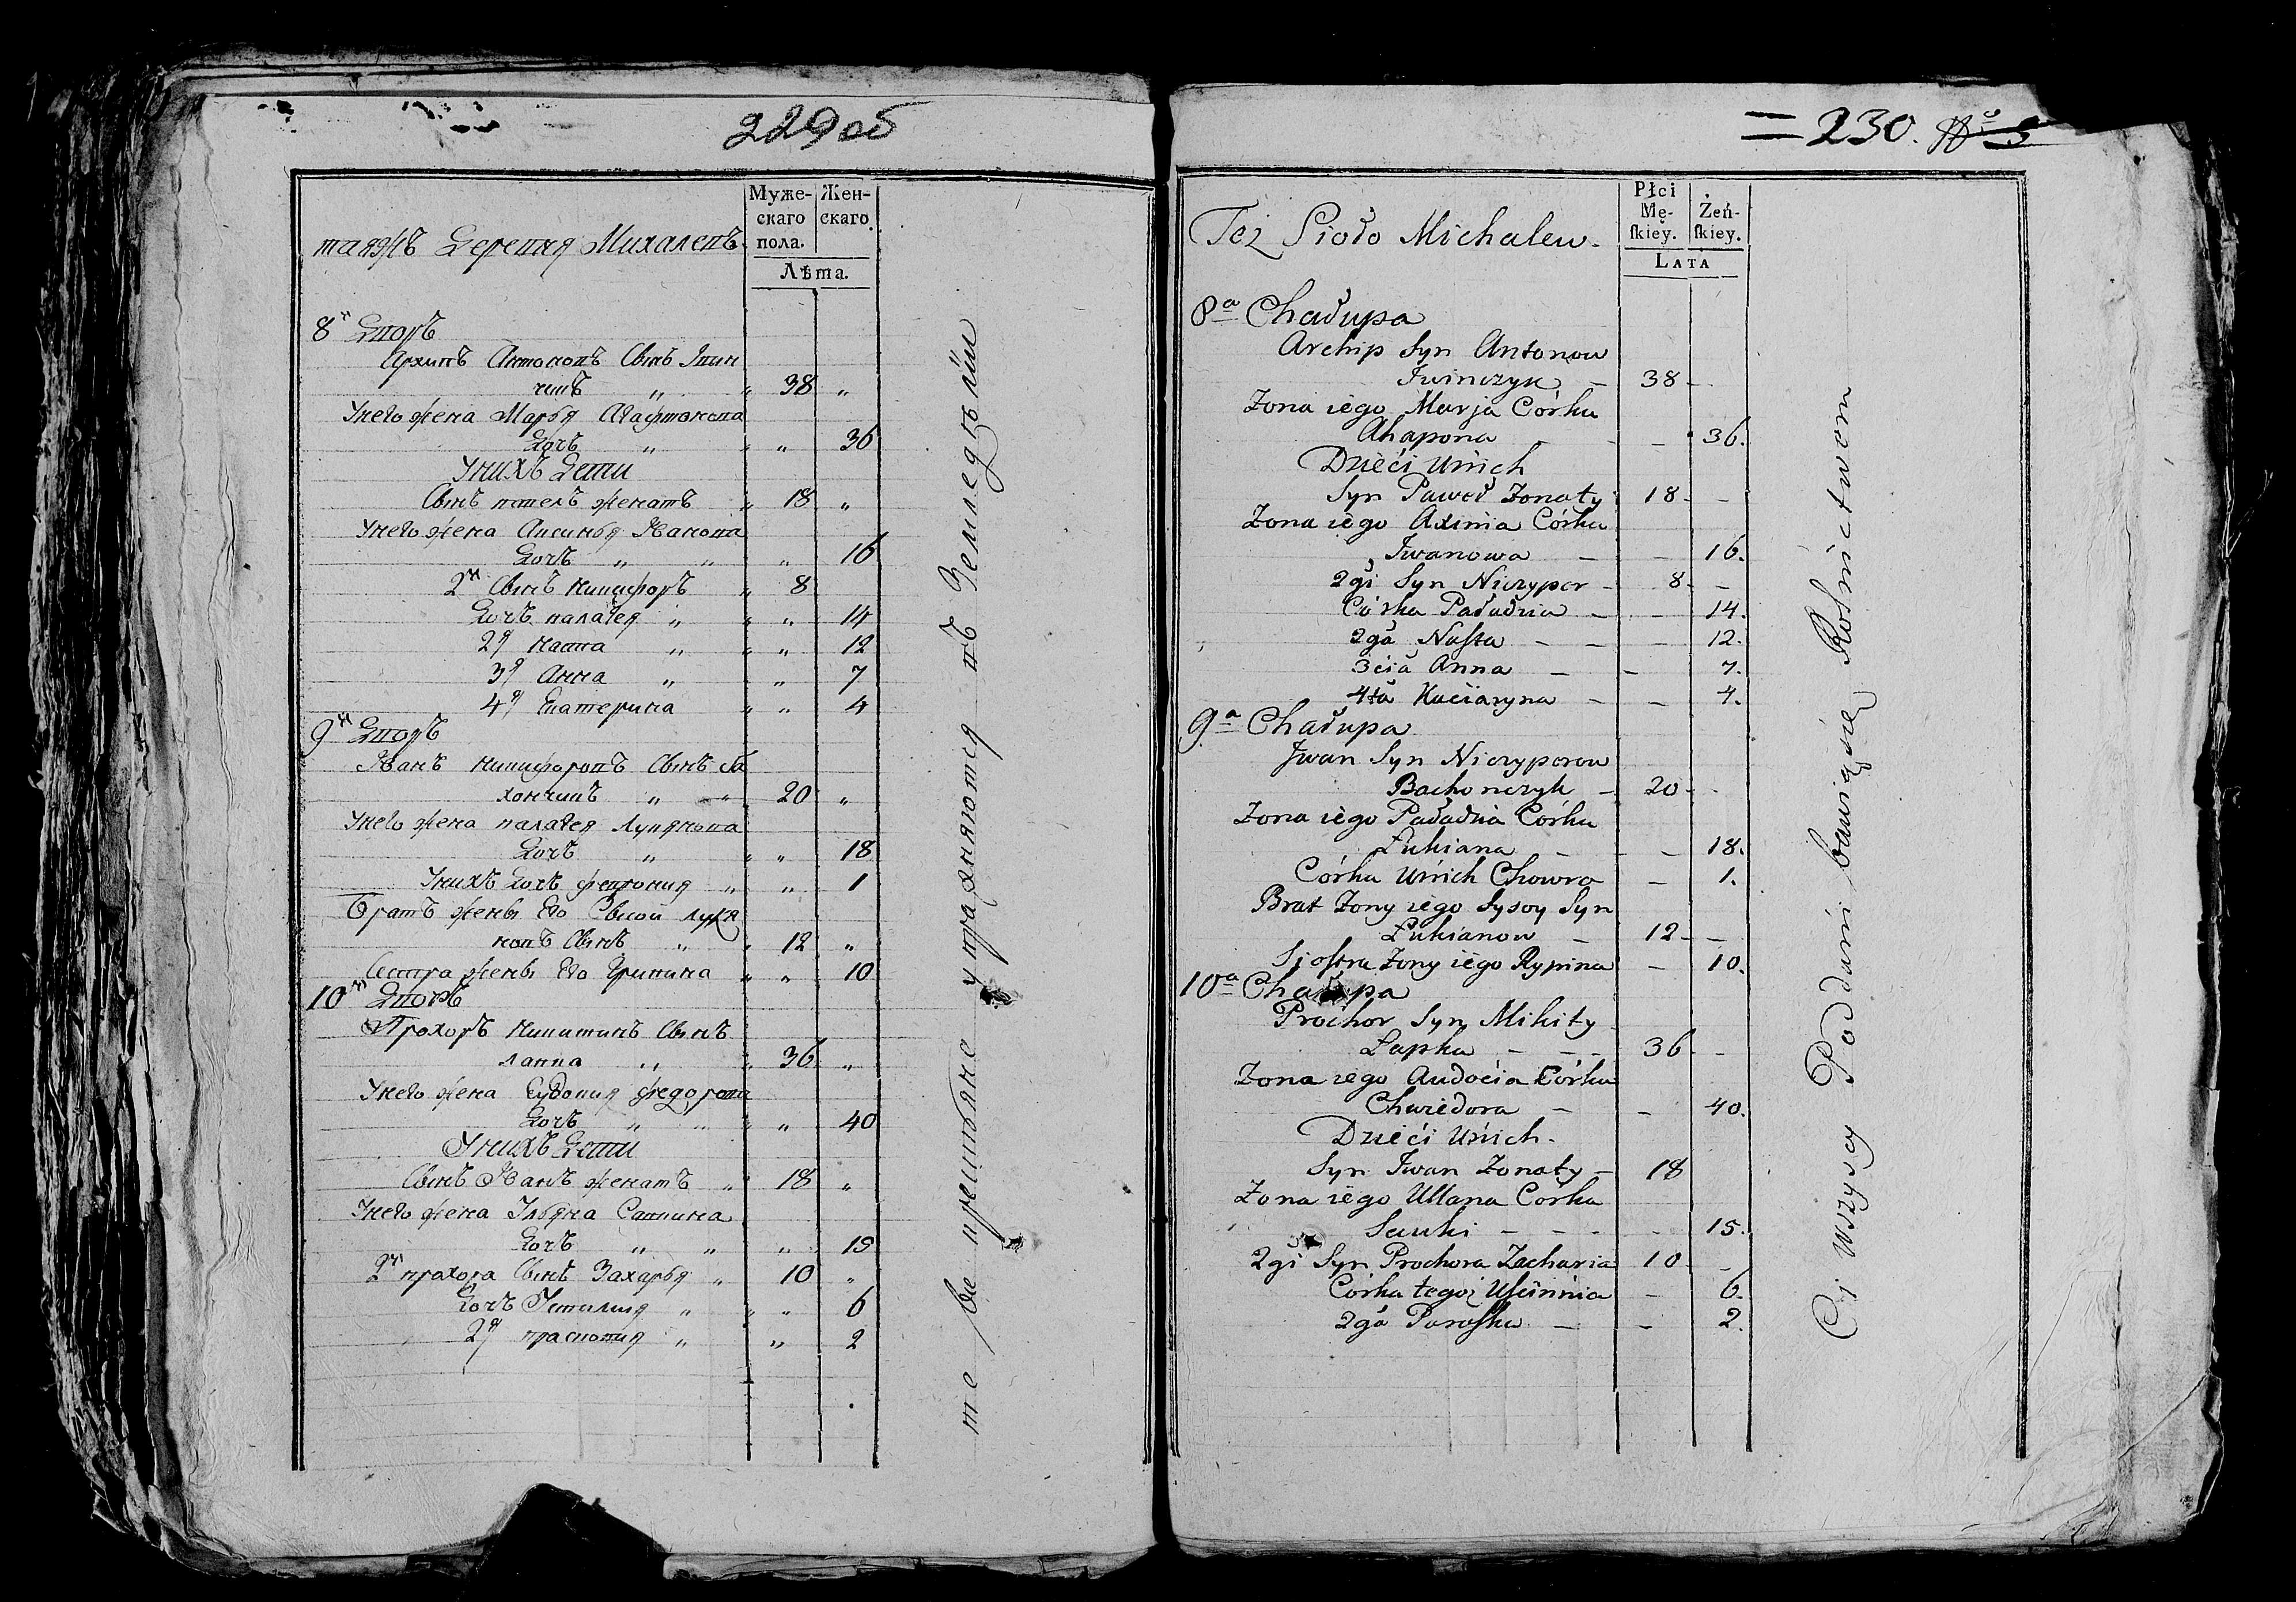 229 об
Муже-
скаго
пола.
Жен-
скаго.
Лѣта.
таяжъ Деревня Михалевъ
8й Дворъ
Архипъ Антоновъ Сынъ Ивин
чикъ 38
Унего жена Марья Агафонова
Дочь 36
Унихъ Дети
Сынъ павелъ женатъ 18
Унего жена Аксинья Иванова
Дочь 16
2й Сынъ Никифоръ 8
Дочь палагея 14
2я Наста 12
3я Анна 7
4я Екатерина 4
9й Дворъ
Иванъ Никифоровъ Сынъ Ба
хончикъ 20
Унего жена палагея Лукянова
Дочь 18
Унихъ Дочь феврония 1
Братъ жены Его Сысой Лукя
новъ Сынъ 12
Сестра жены Его Ирипина 10
10й Дворъ
Прохоръ Никитинъ Сынъ
Лапка 36
Унего жена Евдокия Федорова
Дочь 40
Унихъ Дети
Сынъ Иванъ женатъ 18
Унего жена Ульяна Савкина
Дочь 15
2й прохора Сынъ Захарья 10
Дочь Устиния 6
2я прасковия 2
те все крестьяне упражняются въ Земледѣлии
=230. N° 5
Płci
Mę-
skiey.
Żeń-
skiey.
LATA
Też Sioło Michalew.
8a Chałupa
Archip Syn Antonow
Iwinczyk - 38 -
Zona iego Marja Córka
Ahapona - 36.
Dzieci Unich
Syn Paweł Zonaty 18 -
Zona iego Axinia Córka
Iwanowa - 16.
2gi Syn Niczypor - 8 -
Córka Paładzia - 14.
2ga Nasta - 12.
3cia Anna - 7.
4ta Kaciaryna - 4.
9a Chałupa
Iwan Syn Niczyporow
Bachonczyk - 20 -
Zona iego Paładzia Córka
Łukiana - 18.
Córka Unich Chowra - 1.
Brat Zony iego Sysoy Syn
Łukianow - 12 -
Siostra Zony iego Rypina - 10.
10a Chałupa
Prochor Syn Mikity
Łapka - 36 -
Zona iego Audocia Córka
Chwiedora - 40.
Dzieci Unich.
Syn Iwan Zonaty - 18
Zona iego Ullana Córka
Sauki - 15.
2gi Syn Prochora Zacharia 10 -
Córka tegoż Uscinnia - 6.
2ga Paraska - 2.
Ci wszyscy Poddani bawią się Rolnictwem